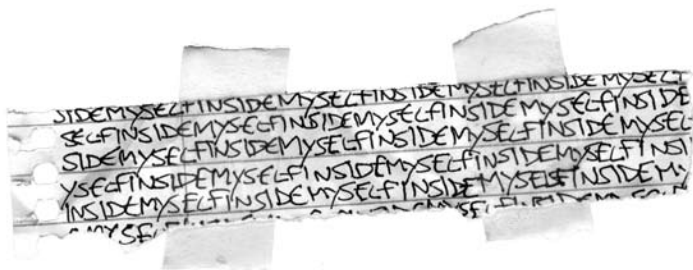 SIDEMYSELFINSIDEMYSELFINSIDEMYSELFINSIDEMYSELF
SELFINSIDEMYSELFINSIDEMYSELFINSIDEMYSELFINSIDE
SIDEMYSELFINSIDEMYSELFINSIDEMYSELFINSIDEMYSEL
YSELFINSIDEMYSELFINSIDEMYSELFINSIDEMYSELFINSI
INSIDEMYSELFINSIDEMYSELFINSIDEMYSELFINSIDEMY